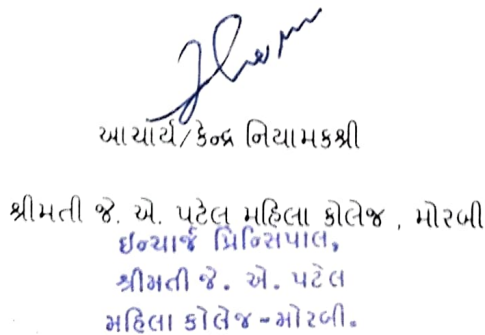 આચાર્ય/કેન્દ્ર નિયામકશ્રી
શ્રીમતી જે. એ. પટેલ મહિલા કોલેજ , મોરબી
ઇન્ચાર્જ પ્રિન્સિપાલ,
શ્રીમતી જે. એ. પટેલ
મહિલા કોલેજ-મોરબી.